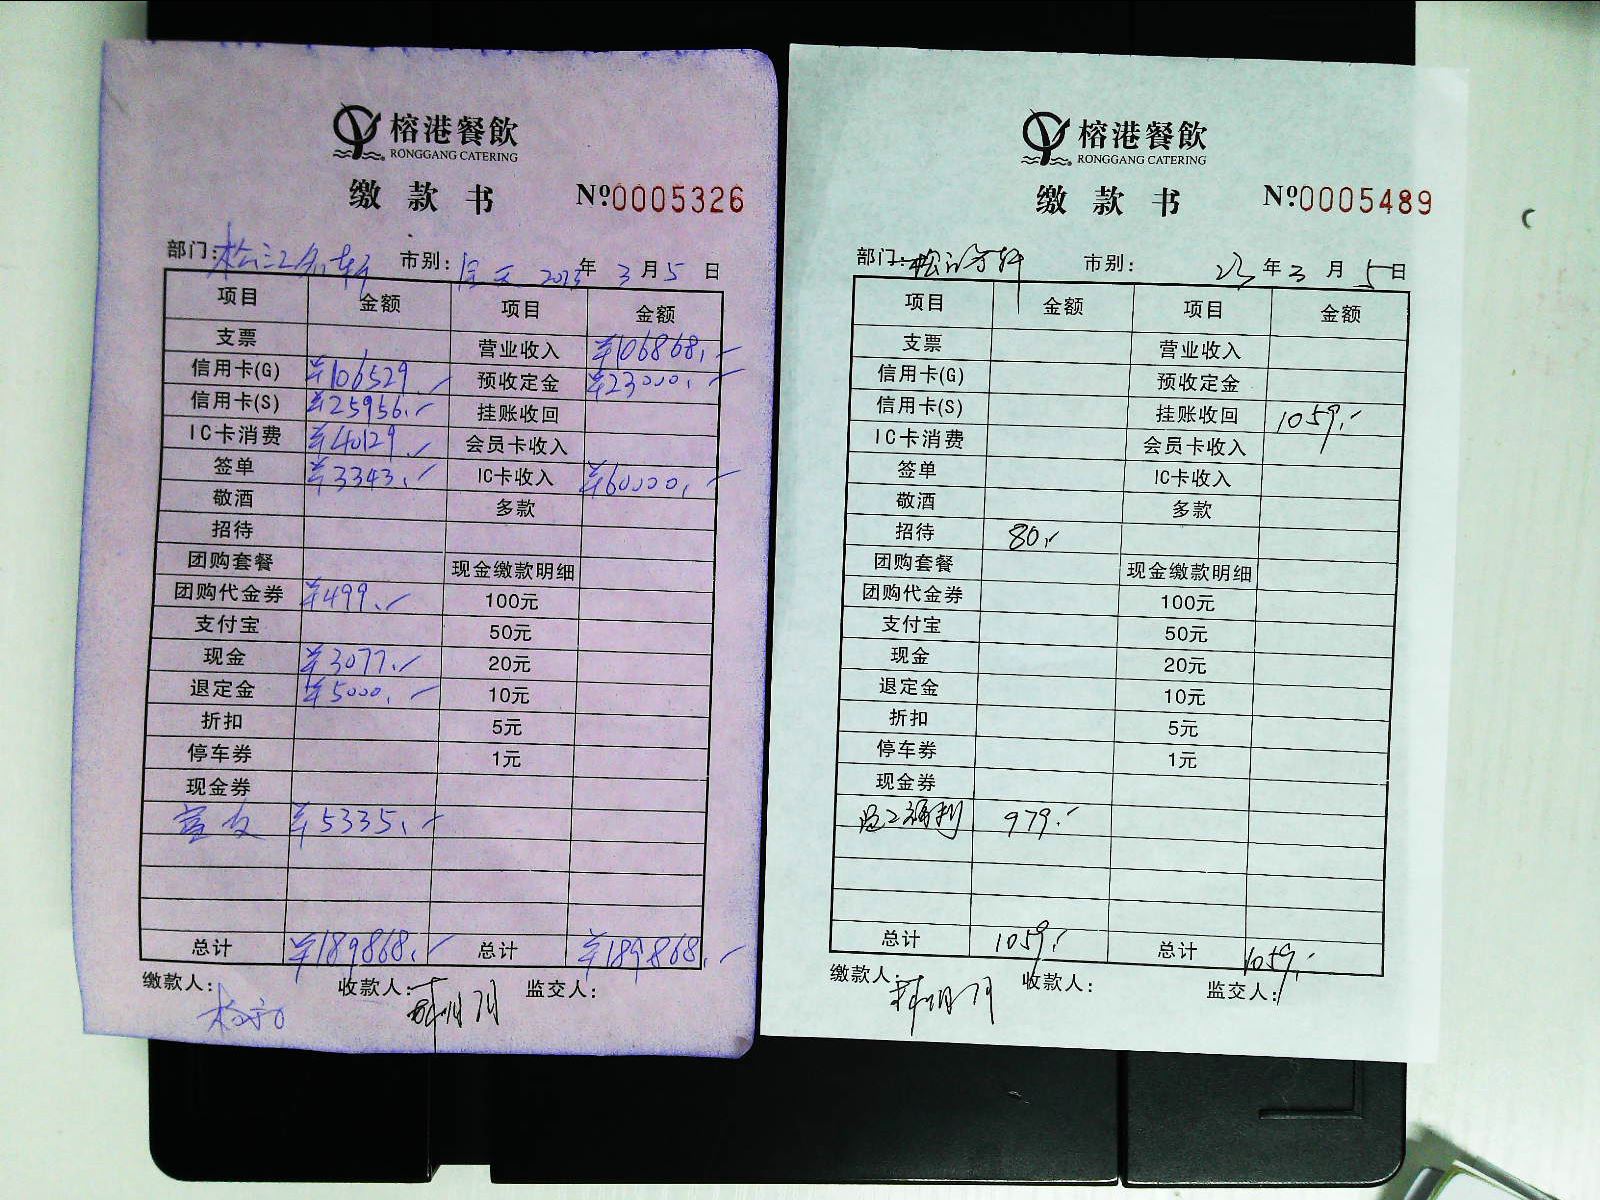 榕港餐飲
RONGGANG CATERING
缴款书 Nº0005326
部门: 市别: 全天 2023年3月5日
项目 金额 项目 金额
支票 营业收入 ¥106868.-
信用卡(G) ¥106529.- 预收定金 ¥23000.-
信用卡(S) ¥25956.- 挂账收回
IC卡消费 ¥40129.- 会员卡收入
签单 ¥3343.- IC卡收入 ¥60000.-
敬酒 多款
招待
团购套餐 现金缴款明细
团购代金券 ¥499.- 100元
支付宝 50元
现金 ¥3077.- 20元
退定金 ¥5000.- 10元
折扣 5元
停车券 1元
现金券
¥5335.-
总计 ¥189868.- 总计 ¥189868.-
缴款人: 收款人: 监交人:
榕港餐飲
RONGGANG CATERING
缴款书 Nº0005489
部门: 市别: 23年3月5日
项目 金额 项目 金额
支票 营业收入
信用卡(G) 预收定金
信用卡(S) 挂账收回 1059.-
IC卡消费 会员卡收入
签单 IC卡收入
敬酒 多款
招待 80.-
团购套餐 现金缴款明细
团购代金券 100元
支付宝 50元
现金 20元
退定金 10元
折扣 5元
停车券 1元
现金券
员工福利 979.-
总计 1059.- 总计 1059.-
缴款人: 收款人: 监交人: